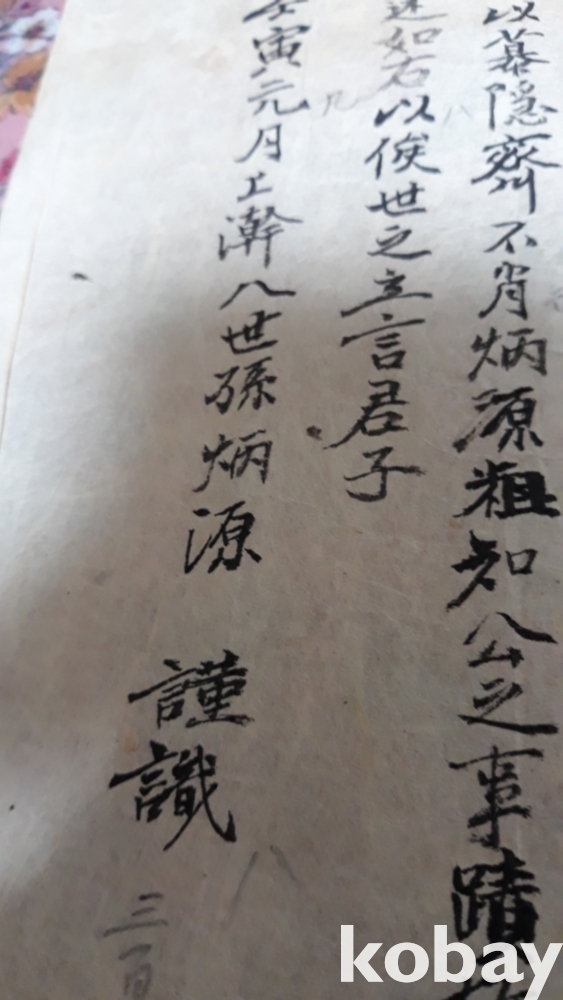 以慕隱齋不肖炳源粗知公之事蹟
述如右以俟世之立言君子
壬寅元月上澣八世孫炳源 謹識
凡
八
八
三百
kobay